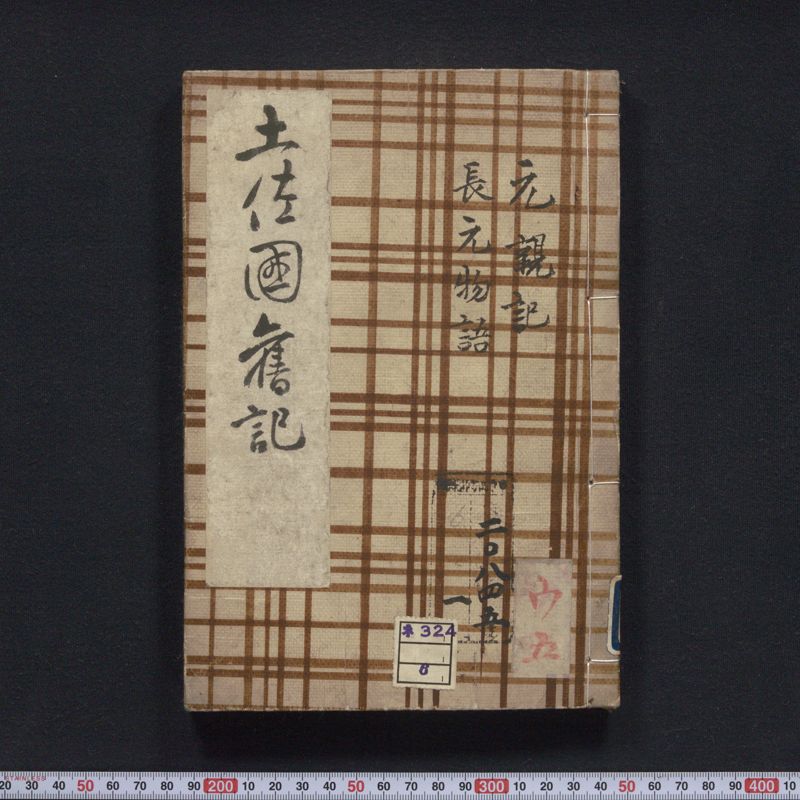 元親記
長元物語
土佐國舊記
二〇八四五
一
ウ五
324
8
STAINLESS
20 30 40 50 60 70 80 90 200 10 20 30 40 50 60 70 80 90 300 10 20 30 40 50 60 70 80 90 400 10